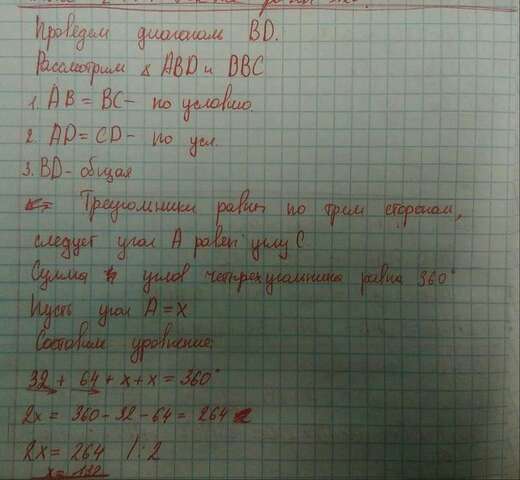 Проведем диагонали BD.
Рассмотрим ABD и DBC
1. AB = BC - по условию.
2. AD = CD - по усл.
3. BD - общая
Треугольники равны по трем сторонам,
следует угол A равен углу C.
Сумма углов четырехугольника равна 360°
Пусть угол A = x
Составим уравнение:
32 + 64 + x + x = 360°
2x = 360 - 32 - 64 = 264
2x = 264 /:2
x = 132